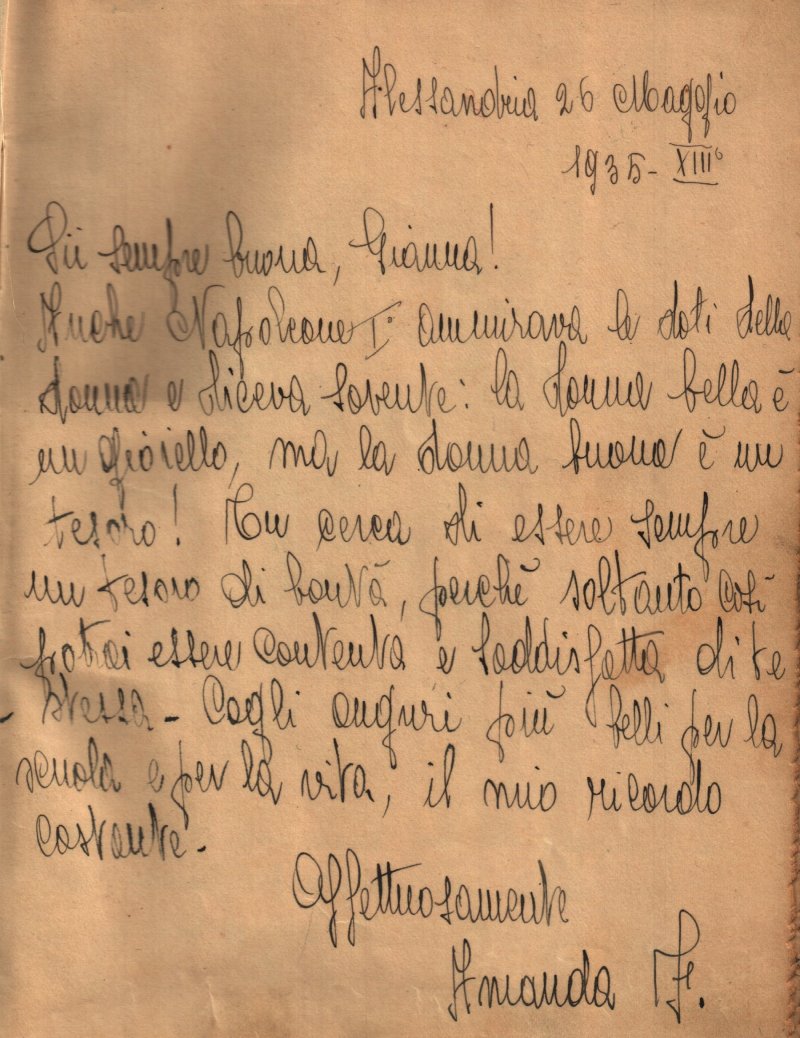 Alessandria 26 Maggio
1935 - XIII°
Sii sempre buona, Gianna!
Anche Napoleone I° ammirava le doti della
donna e diceva sovente: la donna bella è
un gioiello, ma la donna buona è un
tesoro! Tu cerca di essere sempre
un tesoro di bontà, perchè soltanto così
potrai essere contenta e soddisfatta di te
- stessa - Cogli auguri più belli per la
scuola e per la vita, il mio ricordo
costante -
Affettuosamente
Amanda F.